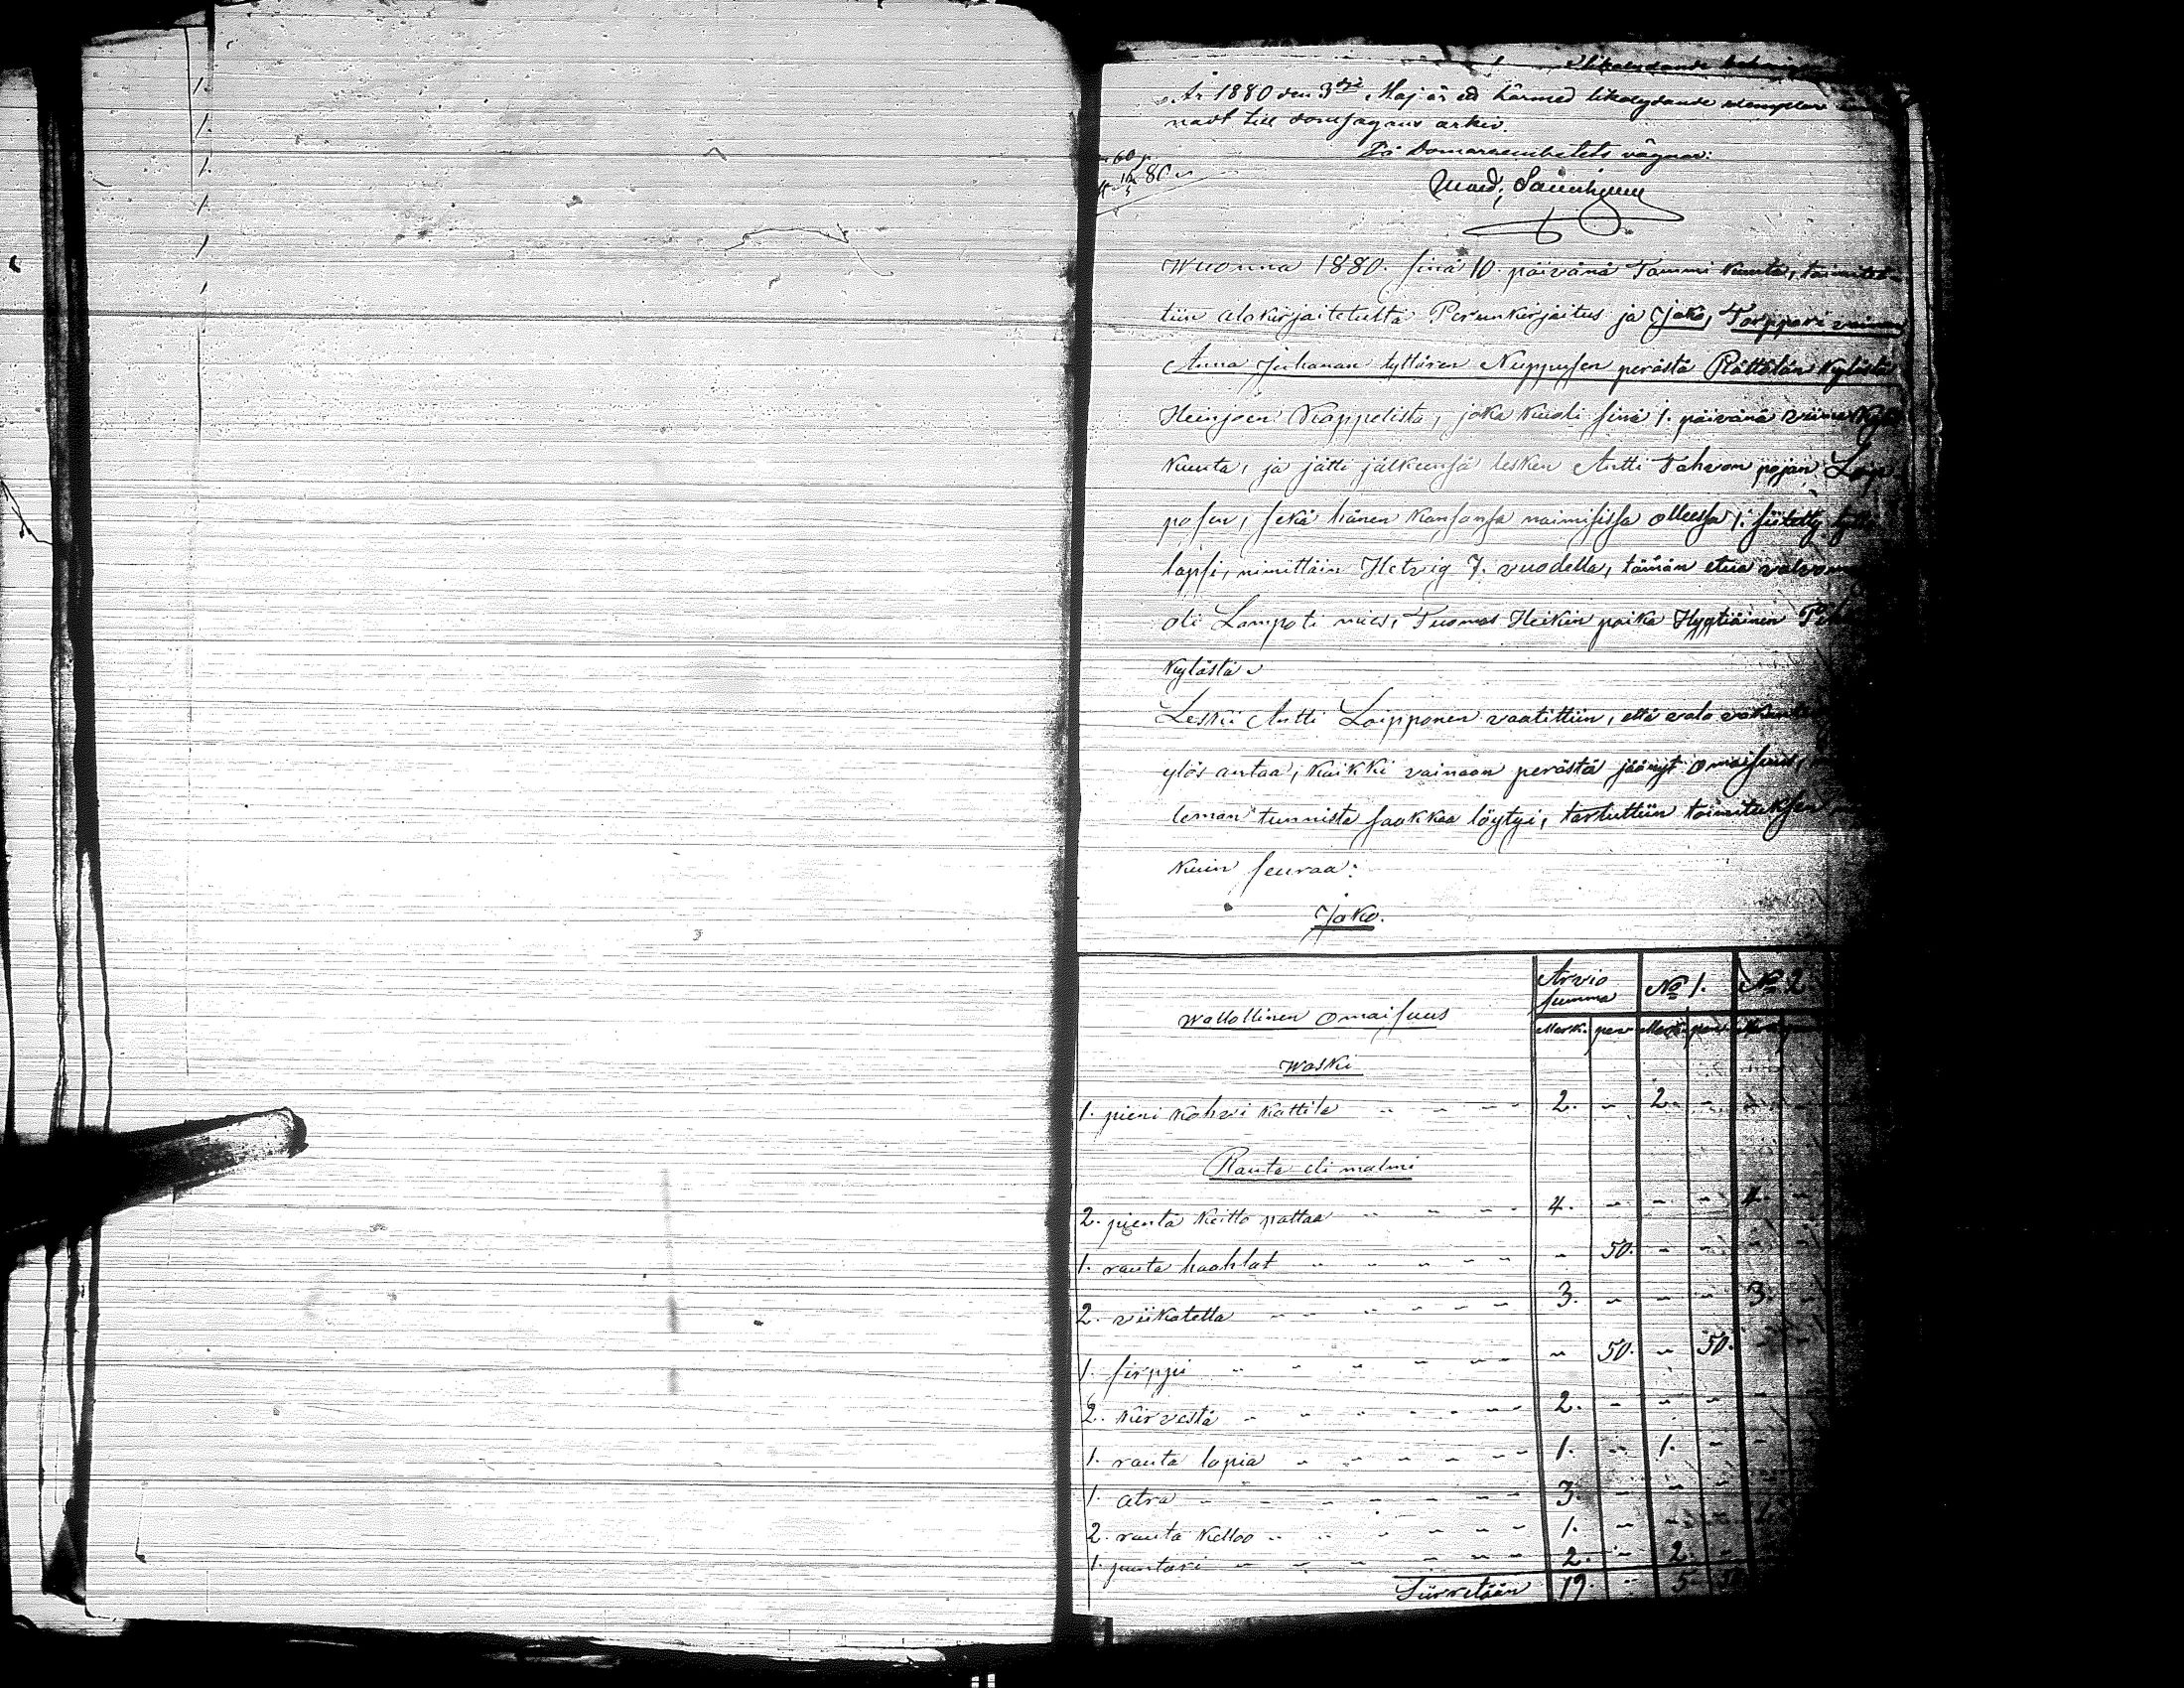 Likalydande
År 1880 den 3dje Maj är ett härmed likalydande exemplar
nadt till domsagans arkiv.
60 p
80
På Domareembetets vägnar:
Wuonna 1880. sinä 10. päivänä Tammi kuuta, toimitet-
tiin alakirjoitetulta Perunkirjoitus ja Jako, Torppari vaimon
Anna Juhanan tyttären Nuppusen perästä Rättölän kylästä
Heinjoen Kappelista, joka kuoli sinä 1. päivänä viime
kuuta, ja jätti jälkeensä lesken Antti Tahvon pojan Loip-
posen, sekä hänen kansansa naimisissa ollessa 1. siitetty
lapsi, nimittäin Hetvig 7. vuodella, tämän etua valvo
oli Lampoti mies, Tuomas Heikin poika Hyytiäinen
kylästä
Leski Antti Loipponen vaatittiin, että vala
ylös antaa, kaikki vainaan perästä jäänyt omaisuus,
leman tunnista saakkaa löytyi, tartuttiin toimituksen
kuin seuraa:
Jako.
Arvio summa No 1. No 2
Wallollinen omaisuus Mark. pen Mark. pen
Waski
1. pieni kahvi kattila 2. - 2. - - -
Rauta eli malmi
2. pientä keitto pattaa 4. - - - 4. -
1. rauta haahlat - 50. - - - -
2. viikatetta 3. - - - 3. -
1. sirppi - 50. - 50. - -
2. kirvestä 2. - - - -
1. rauta lapia 1. - 1. - -
1. atra 3. - - - -
2. rauta kelloo 1. - - -
1. puntari 2. - 2. -
Siirretään 19. - 5.